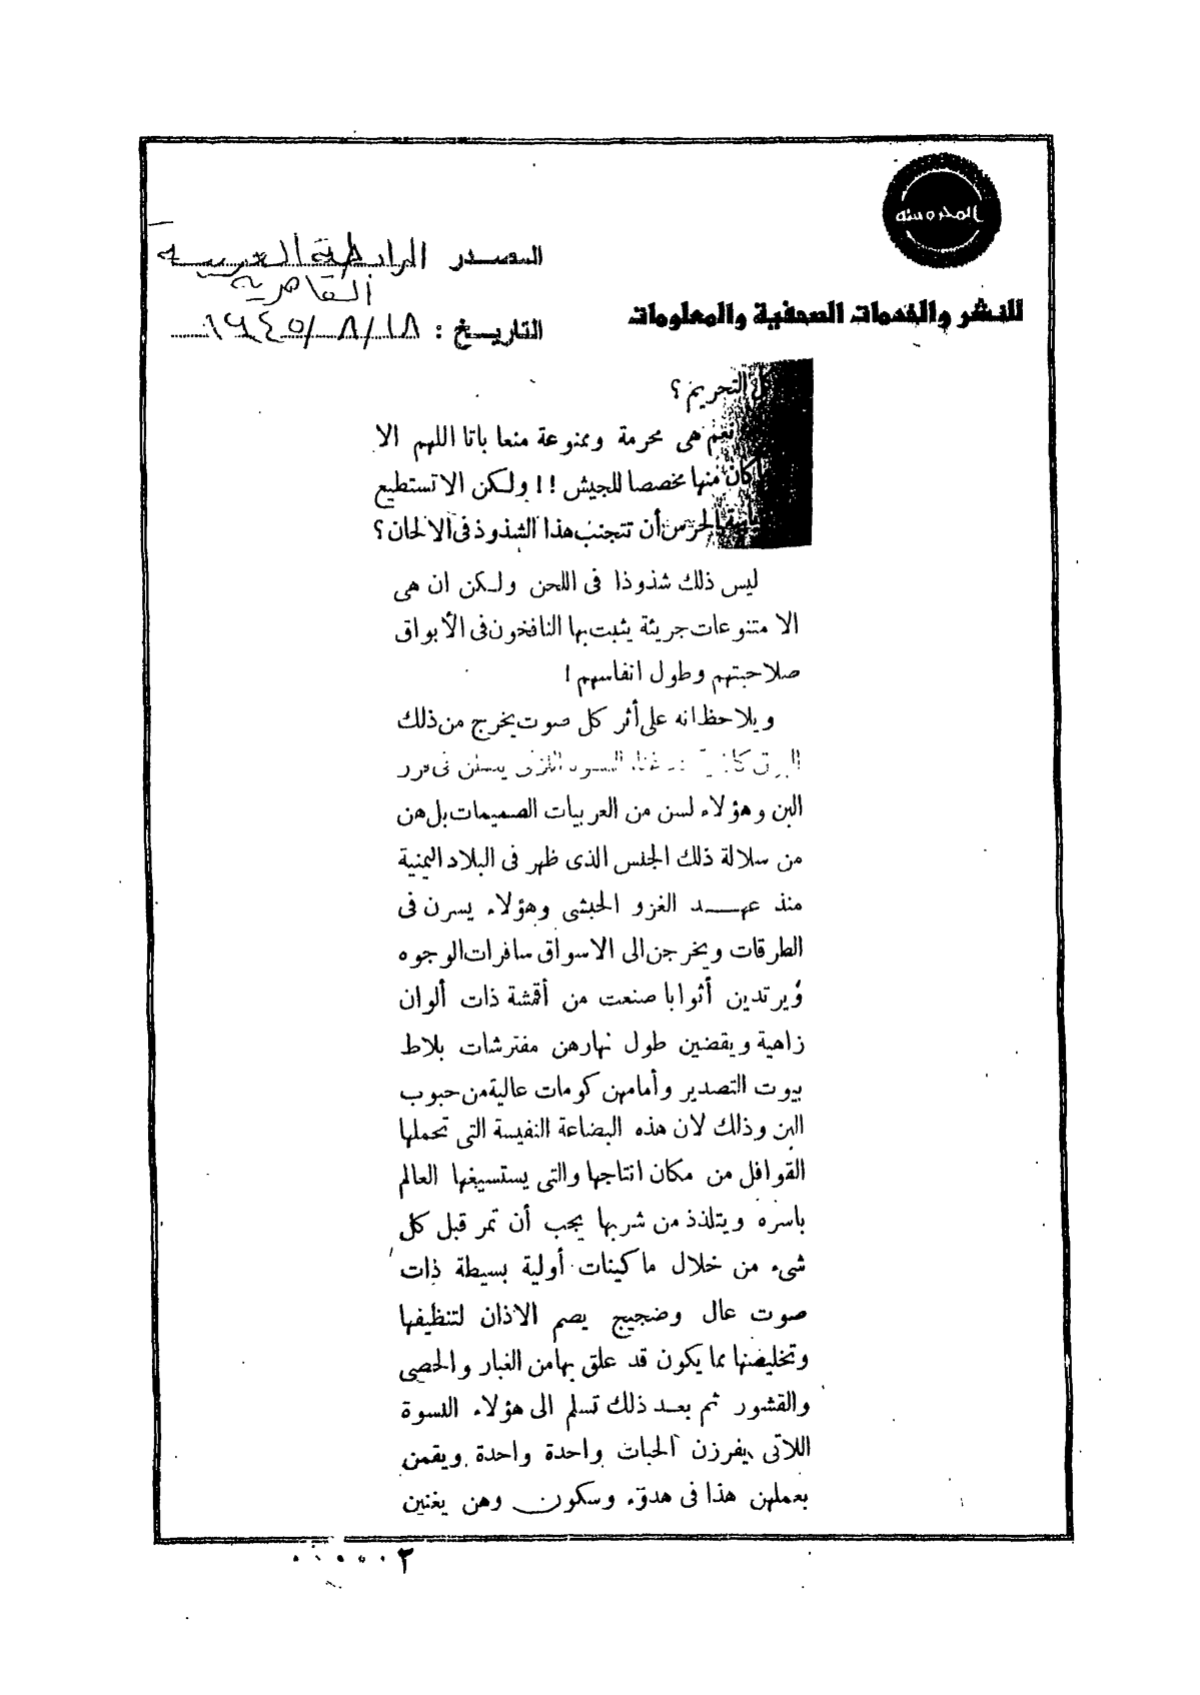 المحروسة
للنشر والخدمات الصحفية والمعلومات
المصدر الرابطة العربية
القاهرية
التاريخ : ١٨/٨/١٩٤٥
كل التحريم ؟
نعم هى محرمة وممنوعة منعا باتا اللهم الا
كان منها مخصصا للجيش !! ولكن الا تستطيع
الحرس أن تتجنب هذا الشذوذ فى الالحان ؟
ليس ذلك شذوذا فى اللحن ولكن ان هى
الا متنوعات جريئة يثبت بها النافخون فى الأبواق
صلاحبتهم وطول انفاسهم !
ويلاحظ انه على أثر كل صوت يخرج من ذلك
البوق النسوة يعملن فى فرز
البن وهؤلاء لسن من العربيات الصميمات بل هن
من سلالة ذلك الجنس الذى ظهر فى البلاد اليمنية
منذ عهد الغزو الحبشى وهؤلاء يسرن فى
الطرقات ويخرجن الى الاسواق سافرات الوجوه
ويرتدين أثوابا صنعت من أقمشة ذات ألوان
زاهية ويقضين طول نهارهن مفترشات بلاط
بيوت التصدير وأمامهن كومات عالية من حبوب
البن وذلك لان هذه البضاعة النفيسة التى تحملها
القوافل من مكان انتاجها والتى يستسيغها العالم
باسره ويتلذذ من شربها يجب أن تمر قبل كل
شىء من خلال ماكينات أولية بسيطة ذات
صوت عال وضجيج يصم الاذان لتنظيفها
وتخليصها مما يكون قد علق بها من الغبار والحصى
والقشور ثم بعد ذلك تسلم الى هؤلاء النسوة
اللاتى يفرزن الحبات واحدة واحدة ويقمن
بعملهن هذا فى هدوء وسكون وهن يغنين